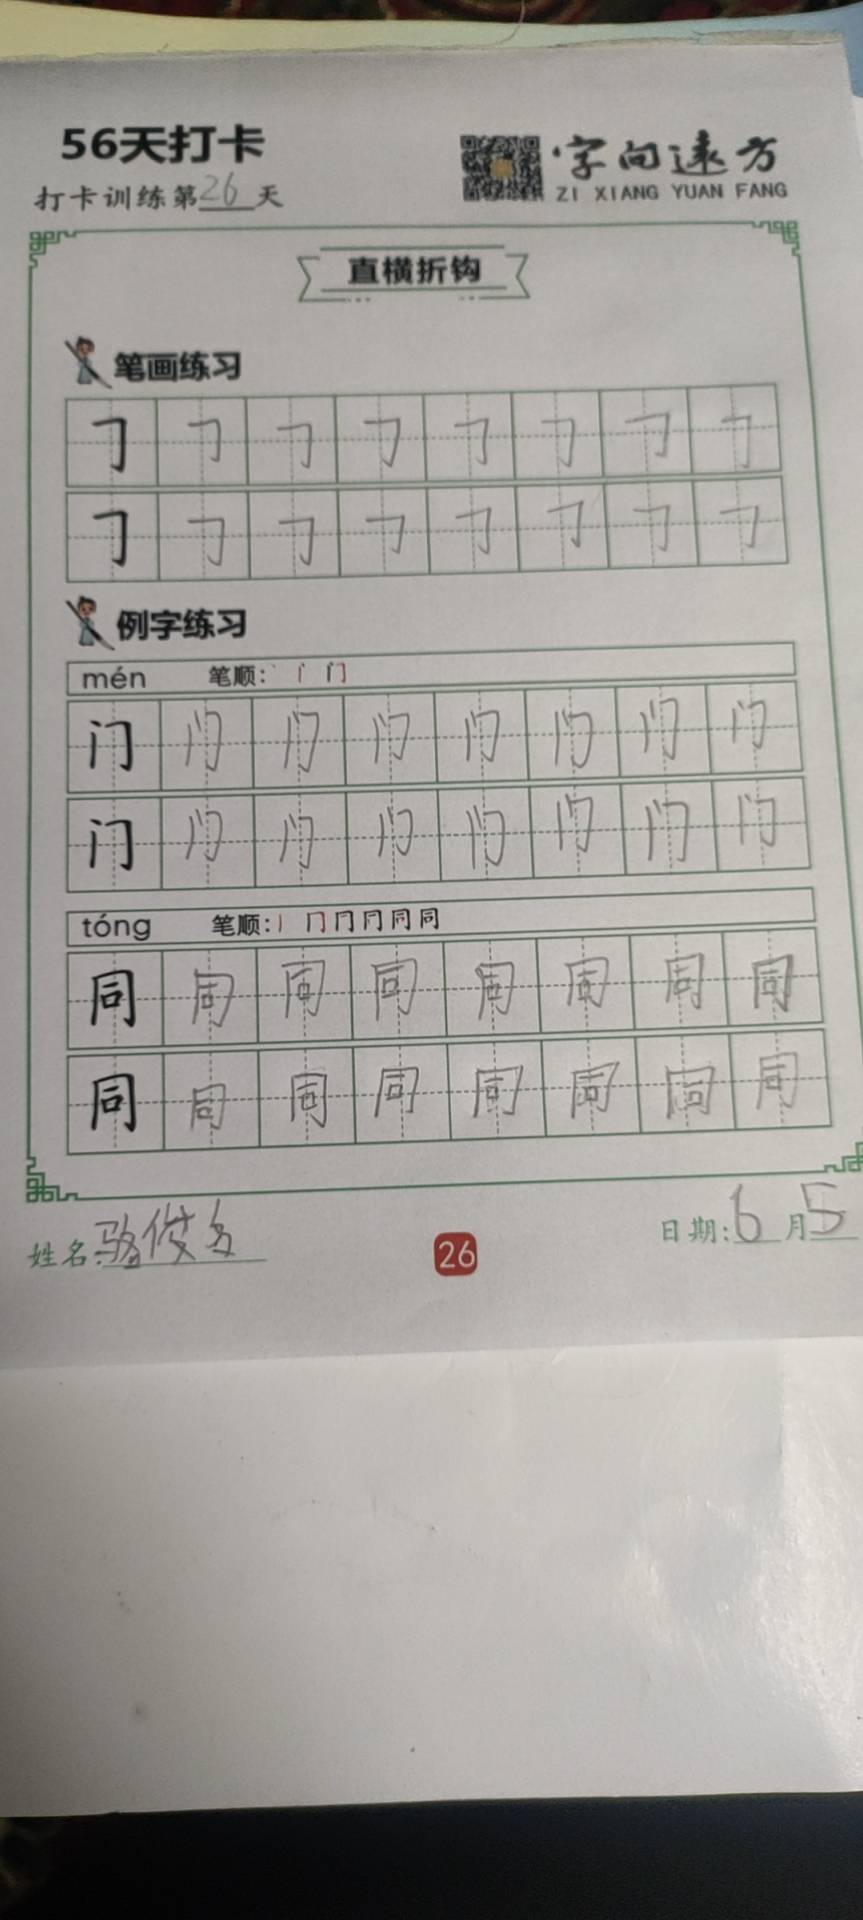 56天打卡
打卡训练第26天
字向远方
ZI XIANG YUAN FANG
直横折钩
笔画练习
例字练习
mén 笔顺:
门 门 门 门 门 门 门 门
门 门 门 门 门 门 门 门
tóng 笔顺: 丨 冂 冂 冋 同 同
同 同 同 同 同 同 同 同
同 同 同 同 同 同 同 同
姓名:骆俊
26
日期:6月5